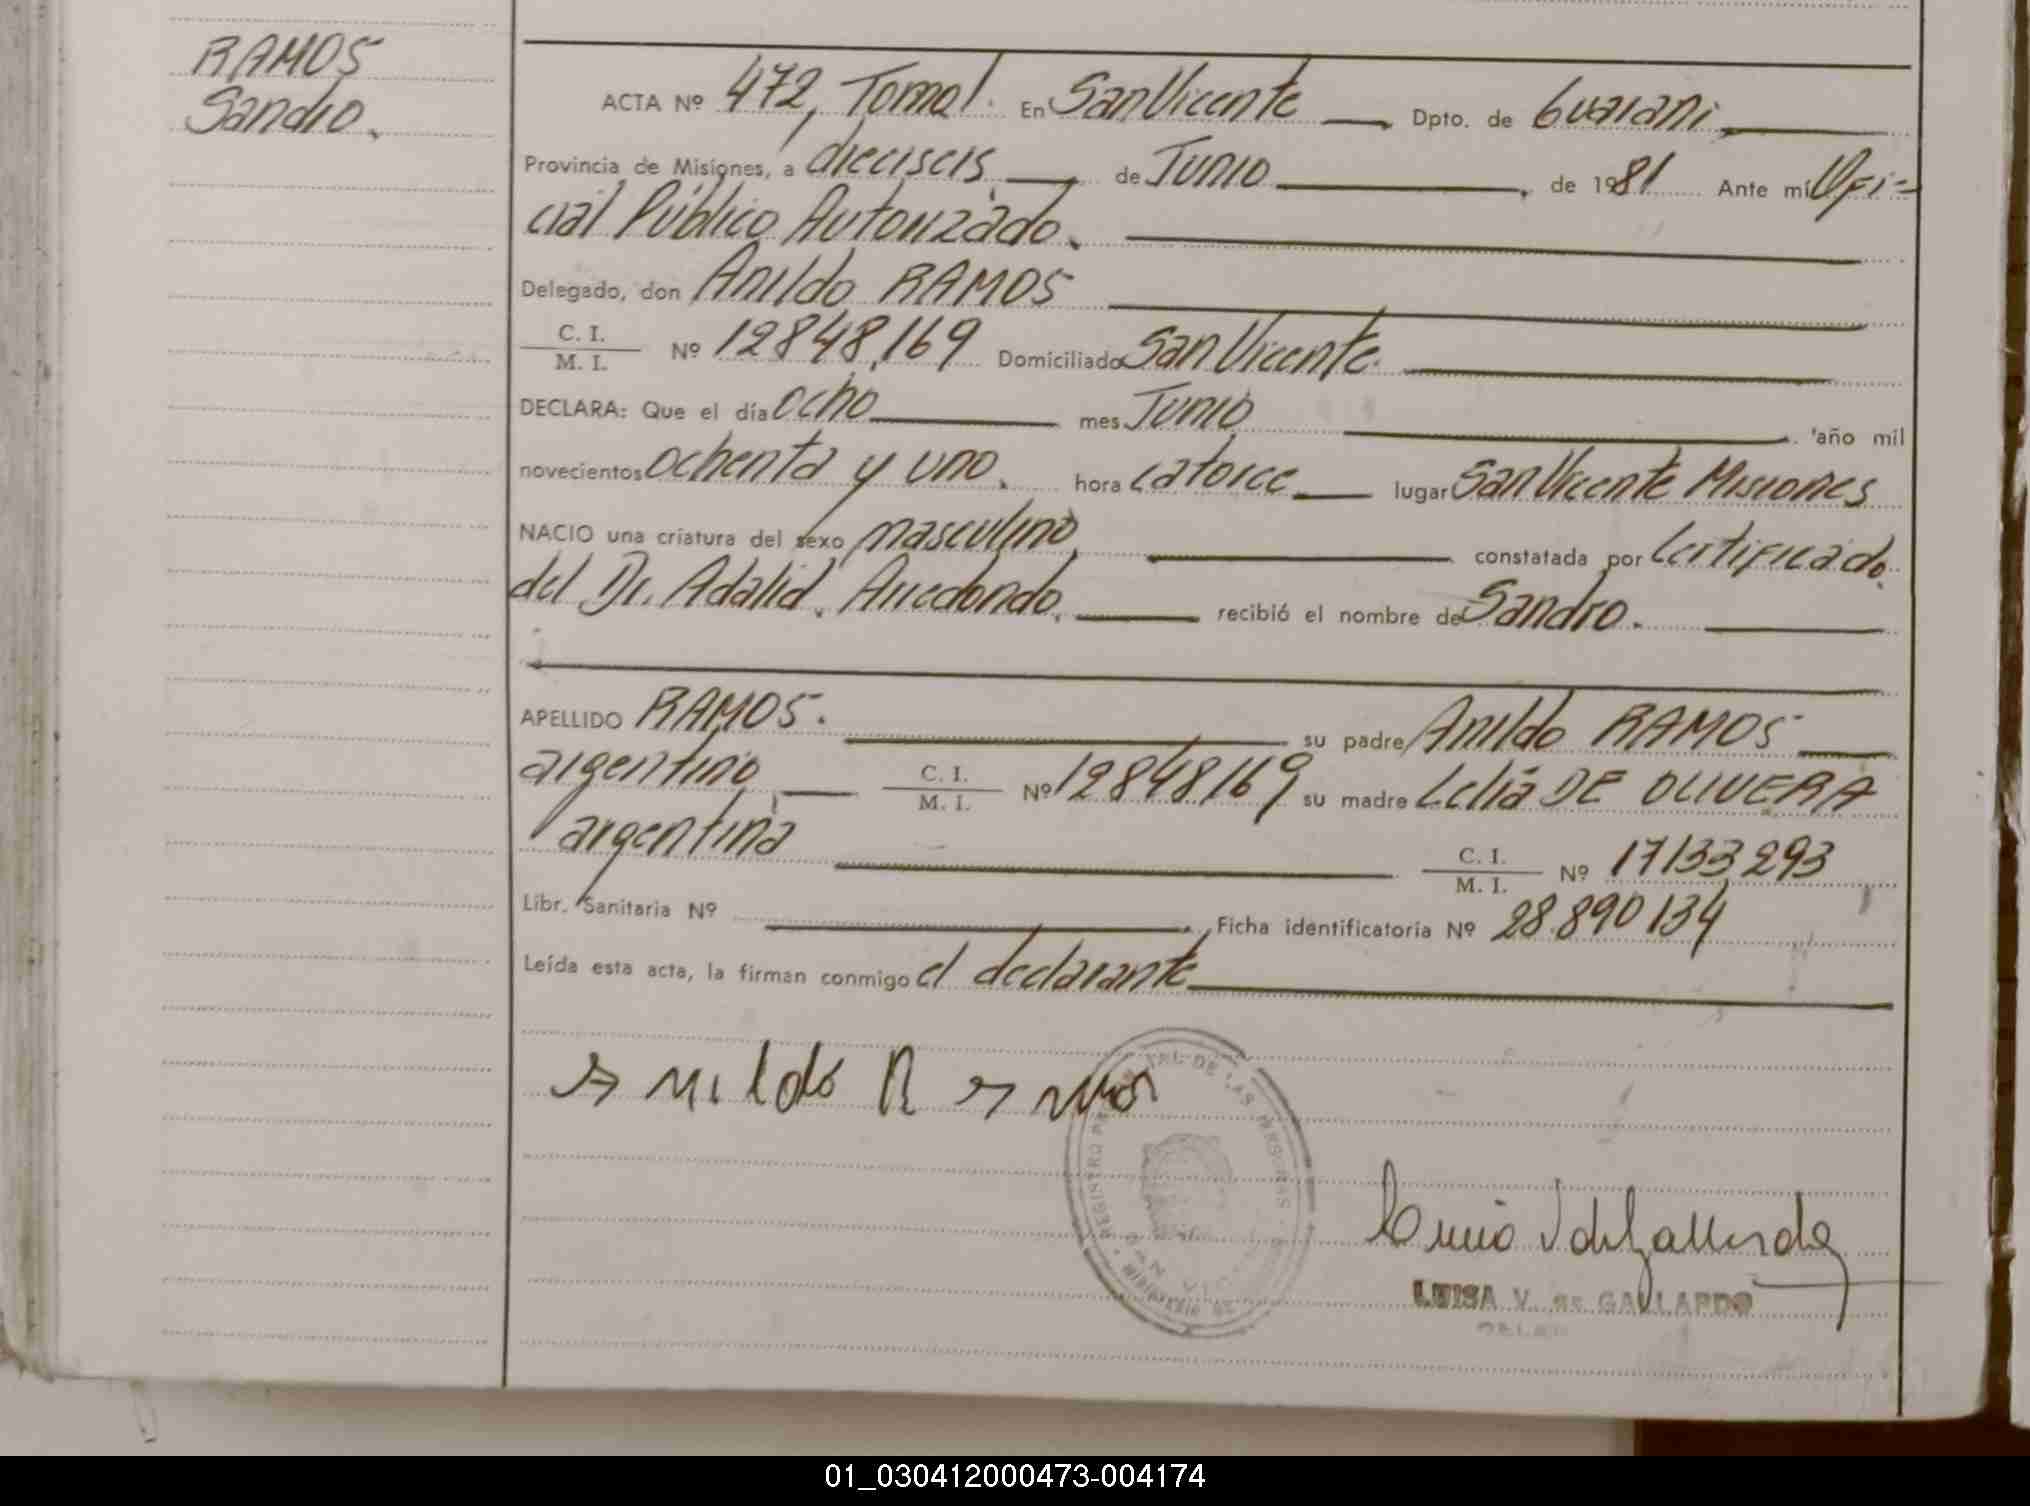 RAMOS
Sandro.
ACTA Nº 472, Tomo I. En San Vicente Dpto. de Guarani,
Provincia de Misiones, a dieciseis de Junio, de 1981 Ante mí Ofi=
cial Público Autorizado.
Delegado, don Anildo RAMOS
C. I.
M. I. Nº 12848,169 Domiciliado San Vicente.
DECLARA: Que el día ocho mes Junio año mil
novecientos ochenta y uno. hora catorce lugar San Vicente Misiones
NACIO una criatura del sexo masculino, constatada por Certificado.
del Dr. Adalid. Arredondo. recibió el nombre de Sandro.
APELLIDO RAMOS. su padre Anildo RAMOS
argentino, C. I.
M. I. Nº 12848169 su madre Lelia DE OLIVERA
argentina C. I.
M. I. Nº 17133,293
Libr. Sanitaria Nº Ficha identificatoria Nº 28.890134
Leída esta acta, la firman conmigo el declarante
Anildo Ramos
REGISTRO DE LAS PERSONAS
LUISA V. de GALLARDO
01_030412000473-004174